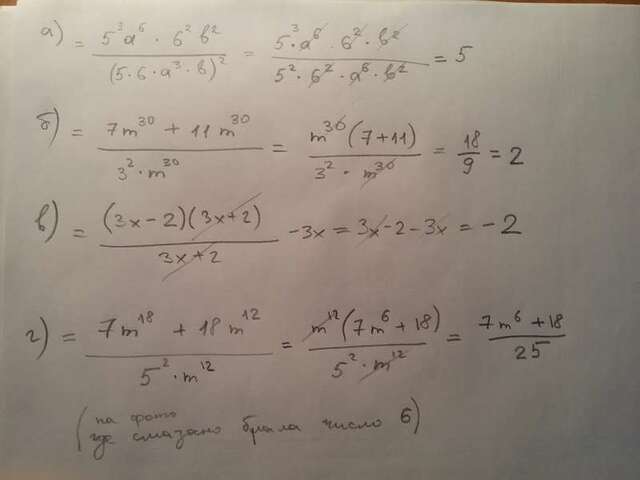 а) = 5³a⁶ · 6² b² / (5·6·a³·b)² = 5³·a⁶·6²·b² / 5²·6²·a⁶·b² = 5
б) = 7m³⁰ + 11m³⁰ / 3²·m³⁰ = m³⁰(7+11) / 3²·m³⁰ = 18/9 = 2
в) = (3x-2)(3x+2) / 3x+2 -3x = 3x-2-3x = -2
г) = 7m¹⁸ + 18m¹² / 5²·m¹² = m¹²(7m⁶+18) / 5²·m¹² = 7m⁶+18 / 25
(на фото
где смазано брала число 6)